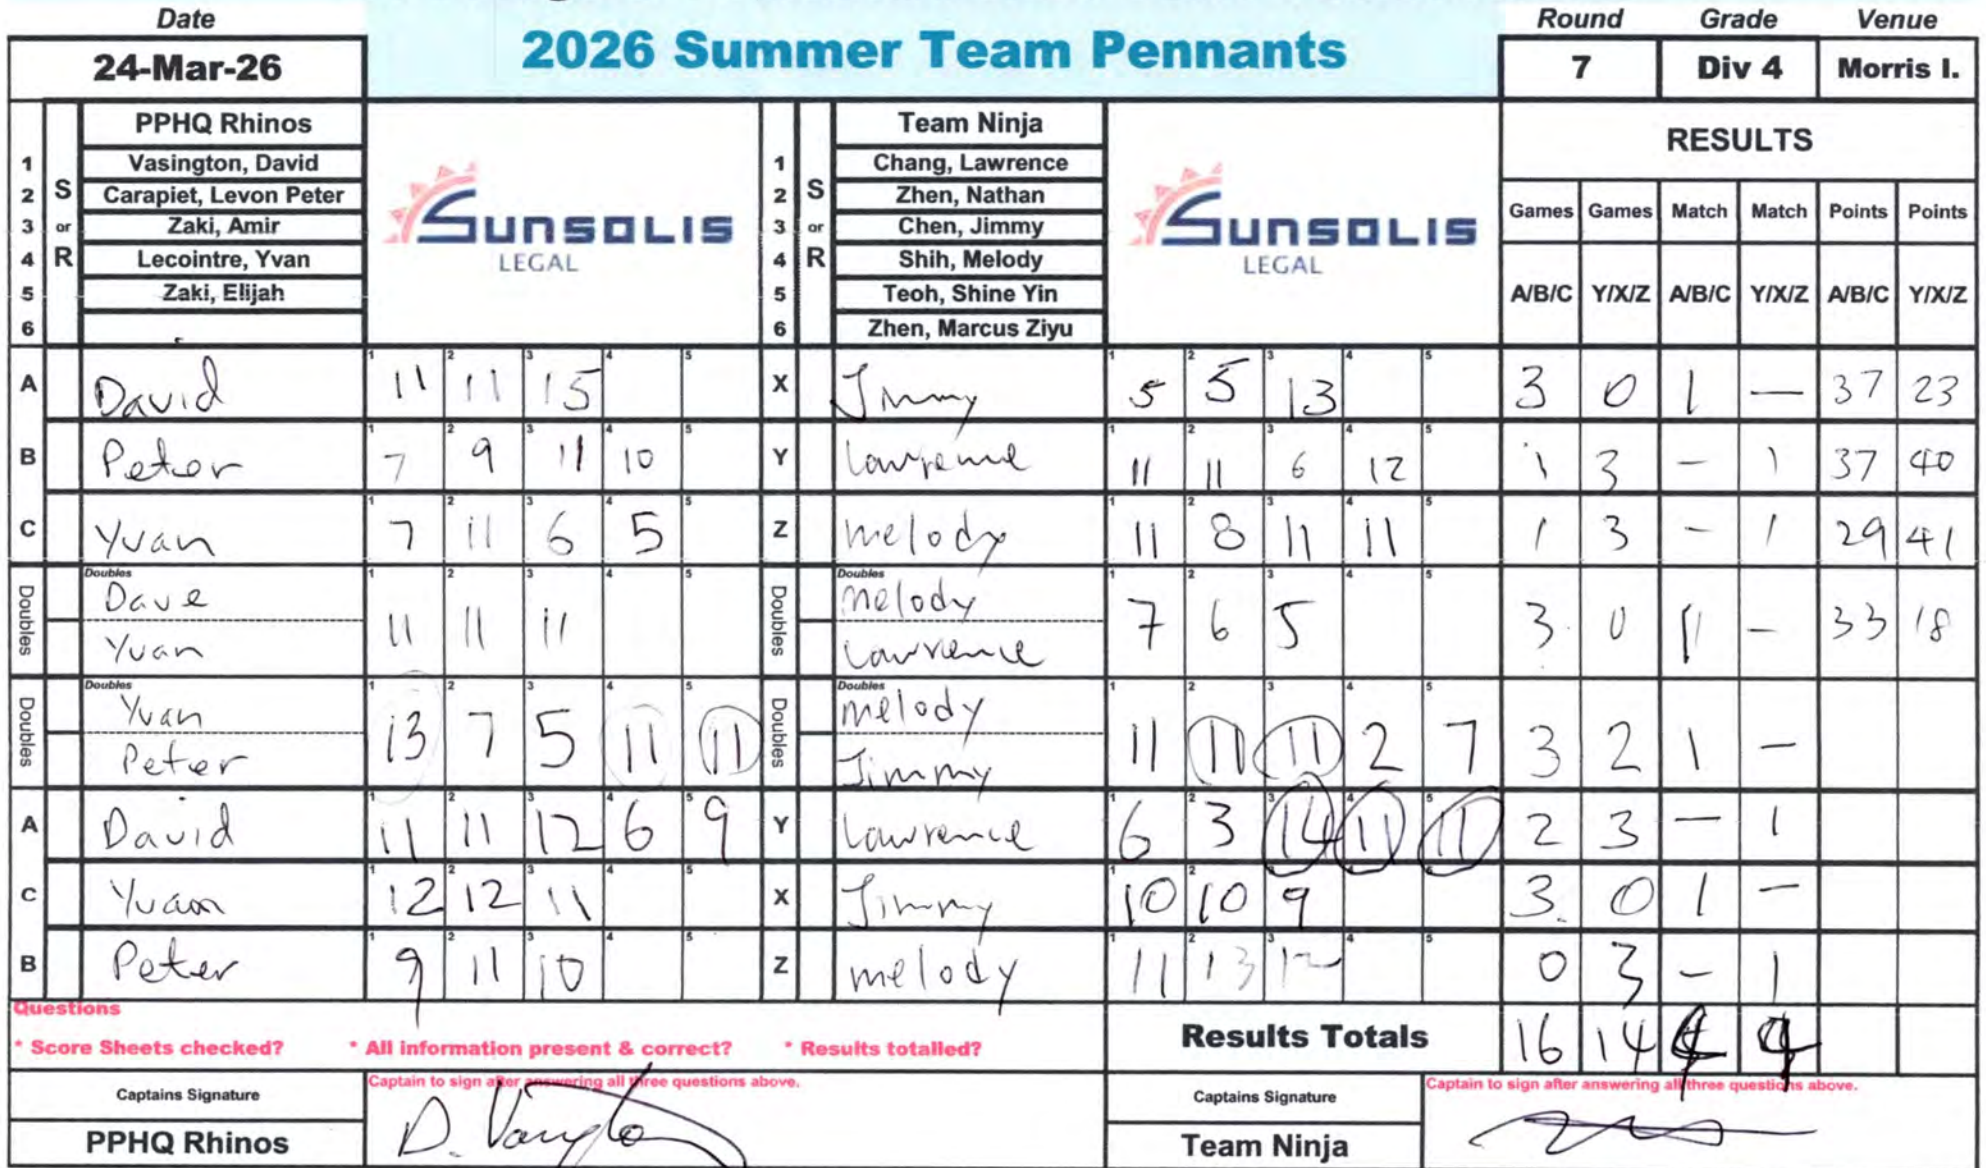 Date
24-Mar-26
2026 Summer Team Pennants
Round Grade Venue
7 Div 4 Morris I.
S or R
PPHQ Rhinos
1 Vasington, David
2 Carapiet, Levon Peter
3 Zaki, Amir
4 Lecointre, Yvan
5 Zaki, Elijah
6
SUNSOLIS
LEGAL
S or R
Team Ninja
1 Chang, Lawrence
2 Zhen, Nathan
3 Chen, Jimmy
4 Shih, Melody
5 Teoh, Shine Yin
6 Zhen, Marcus Ziyu
SUNSOLIS
LEGAL
RESULTS
Games Games Match Match Points Points
A/B/C Y/X/Z A/B/C Y/X/Z A/B/C Y/X/Z
A David 11 11 15 X Jimmy 5 5 13 3 0 1 — 37 23
B Peter 7 9 11 10 Y Lawrence 11 11 6 12 1 3 — 1 37 40
C Yvan 7 11 6 5 Z melody 11 8 11 11 1 3 — 1 29 41
Doubles Dave Yvan 11 11 11 Doubles melody Lawrence 7 6 5 3 0 1 — 33 18
Doubles Yvan Peter 13 7 5 11 11 Doubles melody Jimmy 11 11 11 2 7 3 2 1 —
A David 11 11 12 6 9 Y Lawrence 6 3 14 11 11 2 3 — 1
C Yvan 12 12 11 X Jimmy 10 10 9 3 0 1 —
B Peter 9 11 10 Z melody 11 13 12 0 3 — 1
Questions
* Score Sheets checked? * All information present & correct? * Results totalled?
Results Totals 16 14 4 4
Captains Signature
Captain to sign after answering all three questions above.
PPHQ Rhinos
Captains Signature
Captain to sign after answering all three questions above.
Team Ninja